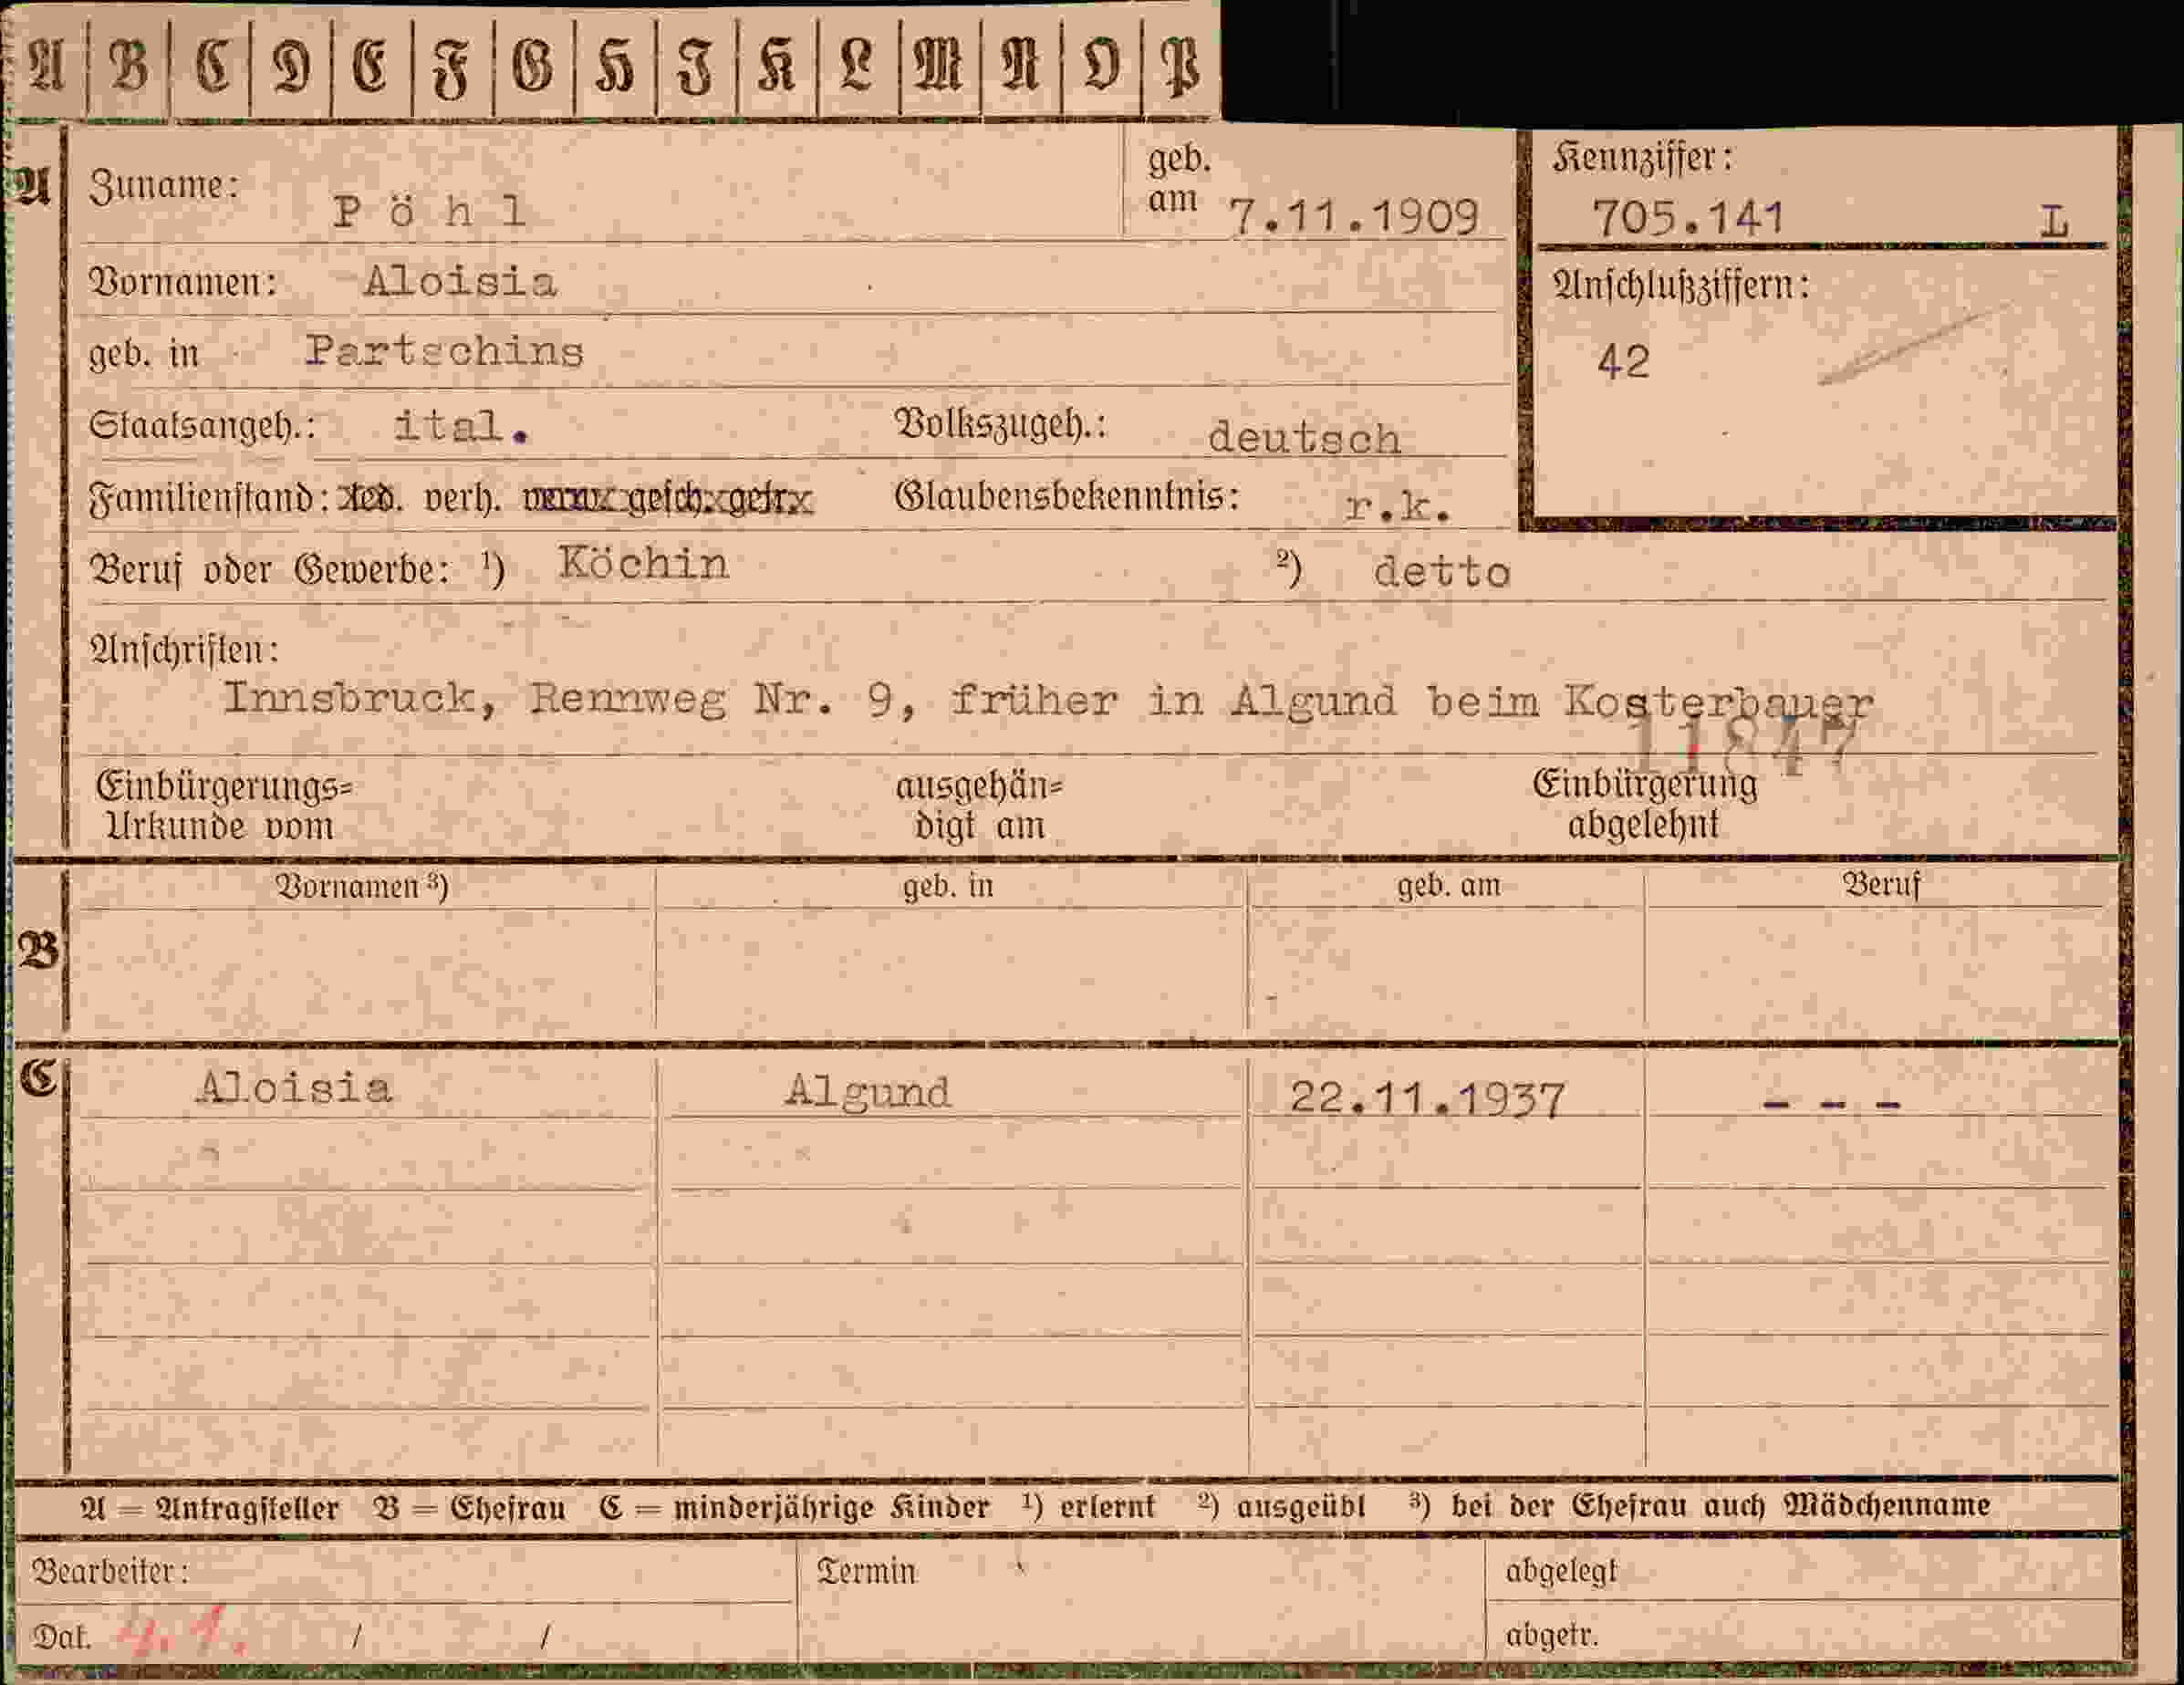 A B C D E F G H I K L M N O P
A Zuname: Pöhl geb. am 7.11.1909
Kennziffer: 705.141 L
Vornamen: Aloisia
Anschlußziffern: 42
geb. in Partschins
Staatsangeh.: ital. Volkszugeh.: deutsch
Familienstand: led. verh. verw. gesch. getr. Glaubensbekenntnis: r.k.
Beruf oder Gewerbe: ¹) Köchin ²) detto
Anschriften:
Innsbruck, Rennweg Nr. 9, früher in Algund beim Kosterbauer
11847
Einbürgerungs= ausgehän= Einbürgerung
Urkunde vom digt am abgelehnt
B Vornamen ³) geb. in geb. am Beruf
C Aloisia Algund 22.11.1937 - - -
A = Antragsteller B = Ehefrau C = minderjährige Kinder ¹) erlernt ²) ausgeübt ³) bei der Ehefrau auch Mädchenname
Bearbeiter: Termin abgelegt
Dat. 4.1. / / abgetr.